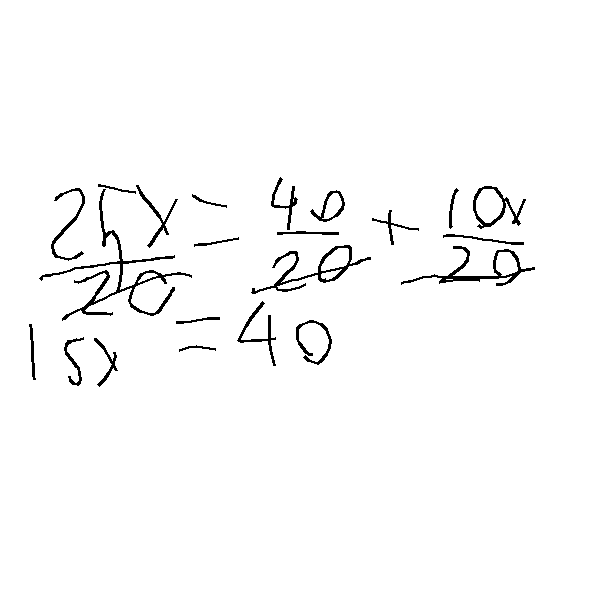 25x/20 = 40/20 + 10x/20
15x = 40